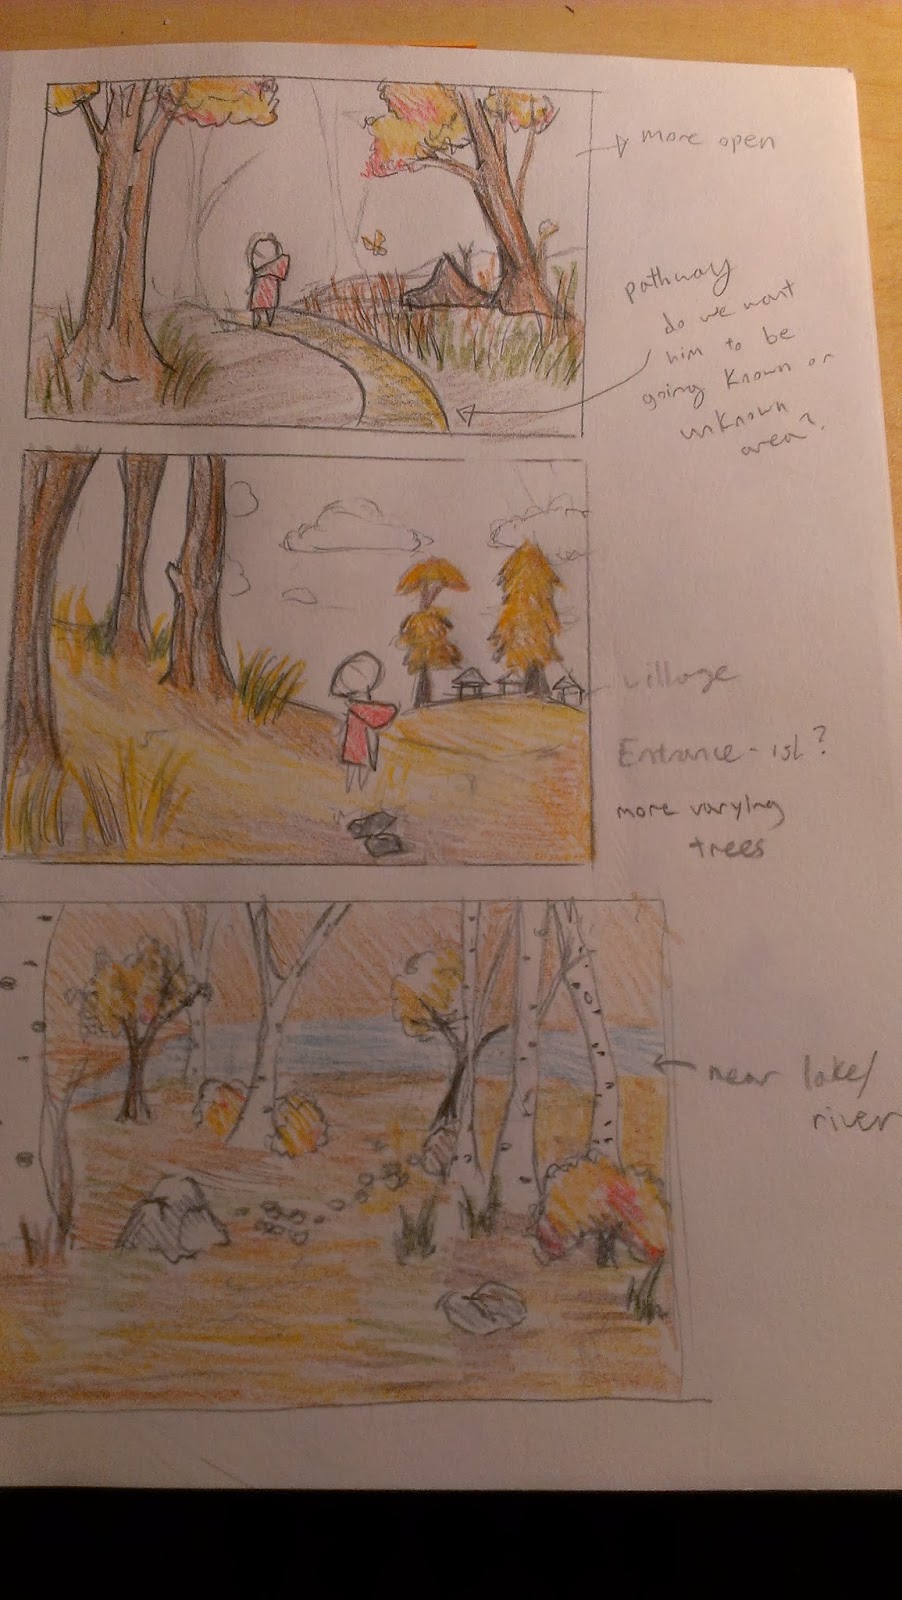 more open
pathway
do we want
him to be
going known or
unknown
area?
village
Entrance-ish?
more varying
trees
near lake/
river